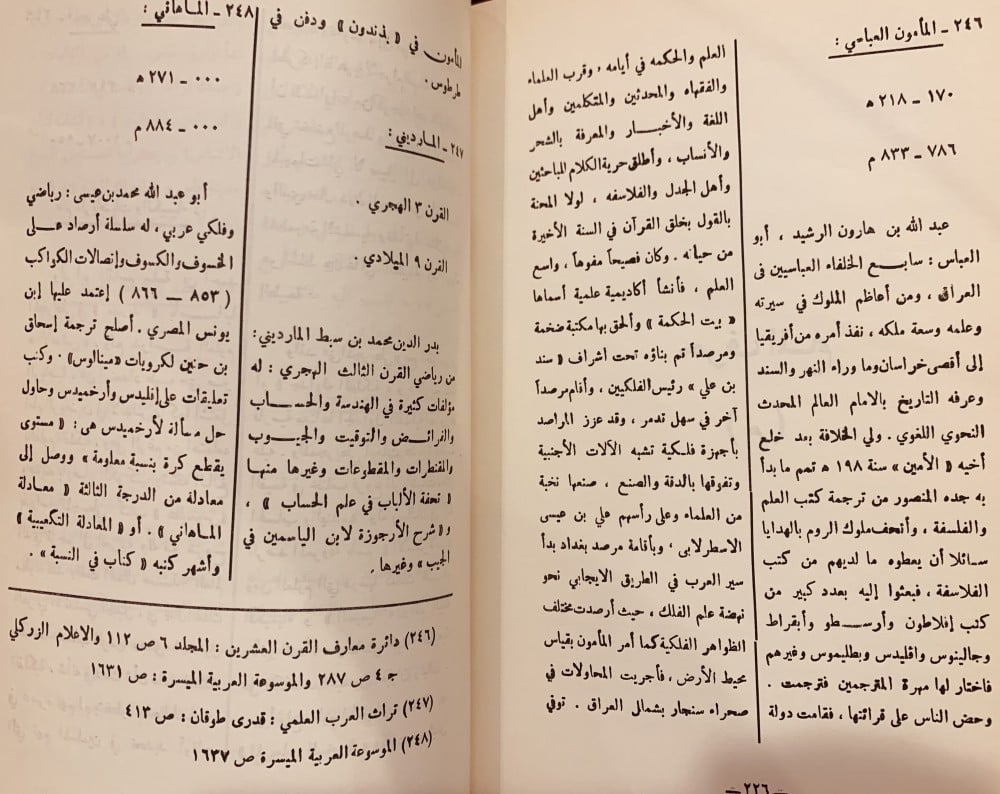 ٢٤٦ - المأمون العباسي :
١٧٠ - ٢١٨ ه
٧٨٦ - ٨٣٣ م
عبد الله بن هارون الرشيد ، أبو
العباس : سابع الخلفاء العباسيين فى
العراق ، ومن أعاظم الملوك في سيرته
وعلمه وسعة ملكه ، نفذ أمره من أفريقيا
إلى أقصى خراسان وما وراء النهر والسند
وعرفه التاريخ بالامام العالم المحدث
النحوي اللغوي . ولي الخلافة بعد خلع
أخيه « الأمين » سنة ١٩٨ ه تمم ما بدأ
به جده المنصور من ترجمة كتب العلم
والفلسفة ، وأتحف ملوك الروم بالهدايا
سائلا أن يعطوه ما لديهم من كتب
الفلاسفة ، فبعثوا إليه بعدد كبير من
كتب إفلاطون وأرسطو وأبقراط
وجالينوس واقليدس وبطليموس وغيرهم
فاختار لها مهرة المترجمين فترجمت .
وحض الناس على قرائتها ، فقامت دولة
العلم والحكمه في أيامه ، وقرب العلماء
والفقهاء والمحدثين والمتكلمين وأهل
اللغة والأخبار والمعرفة بالشعر
والأنساب ، وأطلق حرية الكلام المباحثين
وأهل الجدل والفلاسفه ، لولا المحنة
بالقول بخلق القرآن في السنة الأخيرة
من حياته . وكان فصيحاً مفوهاً ، واسع
العلم ، فأنشأ أكاديمية علمية أسماها
« بيت الحكمة » وألحق بها مكتبة ضخمة
ومرصداً تم بناؤه تحت اشراف « سند
بن علي » رئيس الفلكيين ، وأقام مرصداً
آخر في سهل تدمر ، وقد عزز المراصد
بأجهزة فلكية تشبه الآلات الأجنبية
وتفوقها بالدقة والصنع ، صنعها نخبة
من العلماء وعلى رأسهم علي بن عيسى
الاسطرلابى ، وبأقامة مرصد بغداد بدأ
سير العرب في الطريق الايجابي نحو
نهضة علم الفلك ، حيث أرصدت مختلف
الظواهر الفلكية كما أمر المأمون بقياس
محيط الأرض ، فأجريت المحاولات في
صحراء سنجار بشمال العراق . توفي
— ٢٢٦ —
المأمون في « بذندون » ودفن في
طرطوس .
٢٤٧ - المارديني :
القرن ٣ الهجري .
القرن ٩ الميلادي .
بدر الدين محمد بن سبط المارديني :
من رياضي القرن الثالث الهجري : له
مؤلفات كثيرة في الهندسة والحساب
والفرائض والتوقيت والجيوب
والمقنطرات والمقطوعات وغيرها منها
« تحفة الألباب في علم الحساب » ،
و « شرح الأرجوزة لابن الياسمين في
الجيب » وغيرها .
٢٤٨ - الماهاني :
٠٠٠ - ٢٧١ ه
٠٠٠ - ٨٨٤ م
أبو عبد الله محمد بن عيسى : رياضي
وفلكي عربي ، له سلسلة أرصاد على
الخسوف والكسوف وإتصالات الكواكب
( ٨٥٣ — ٨٦٦ ) إعتمد عليها إبن
يونس المصري . أصلح ترجمة إسحاق
بن حنين لكرويات «مينالوس» . وكتب
تعليقات على إقليدس وأرخميدس وحاول
حل مسألة لأرخميدس هى : « مستوى
يقطع كرة بنسبة معلومة » ووصل إلى
معادلة من الدرجة الثالثة « معادلة
الماهاني » . أو « المعادلة التكعيبية »
وأشهر كتبه « كتاب في النسبة » .
(٢٤٦) دائرة معارف القرن العشرين : المجلد ٦ ص ١١٢ والاعلام الزركلي
ج ٤ ص ٢٨٧ والموسوعة العربية الميسرة : ص ١٦٣١
(٢٤٧) تراث العرب العلمي : قدرى طوقان : ص ٤١٣
(٢٤٨) الموسوعة العربية الميسرة ص ١٦٣٧